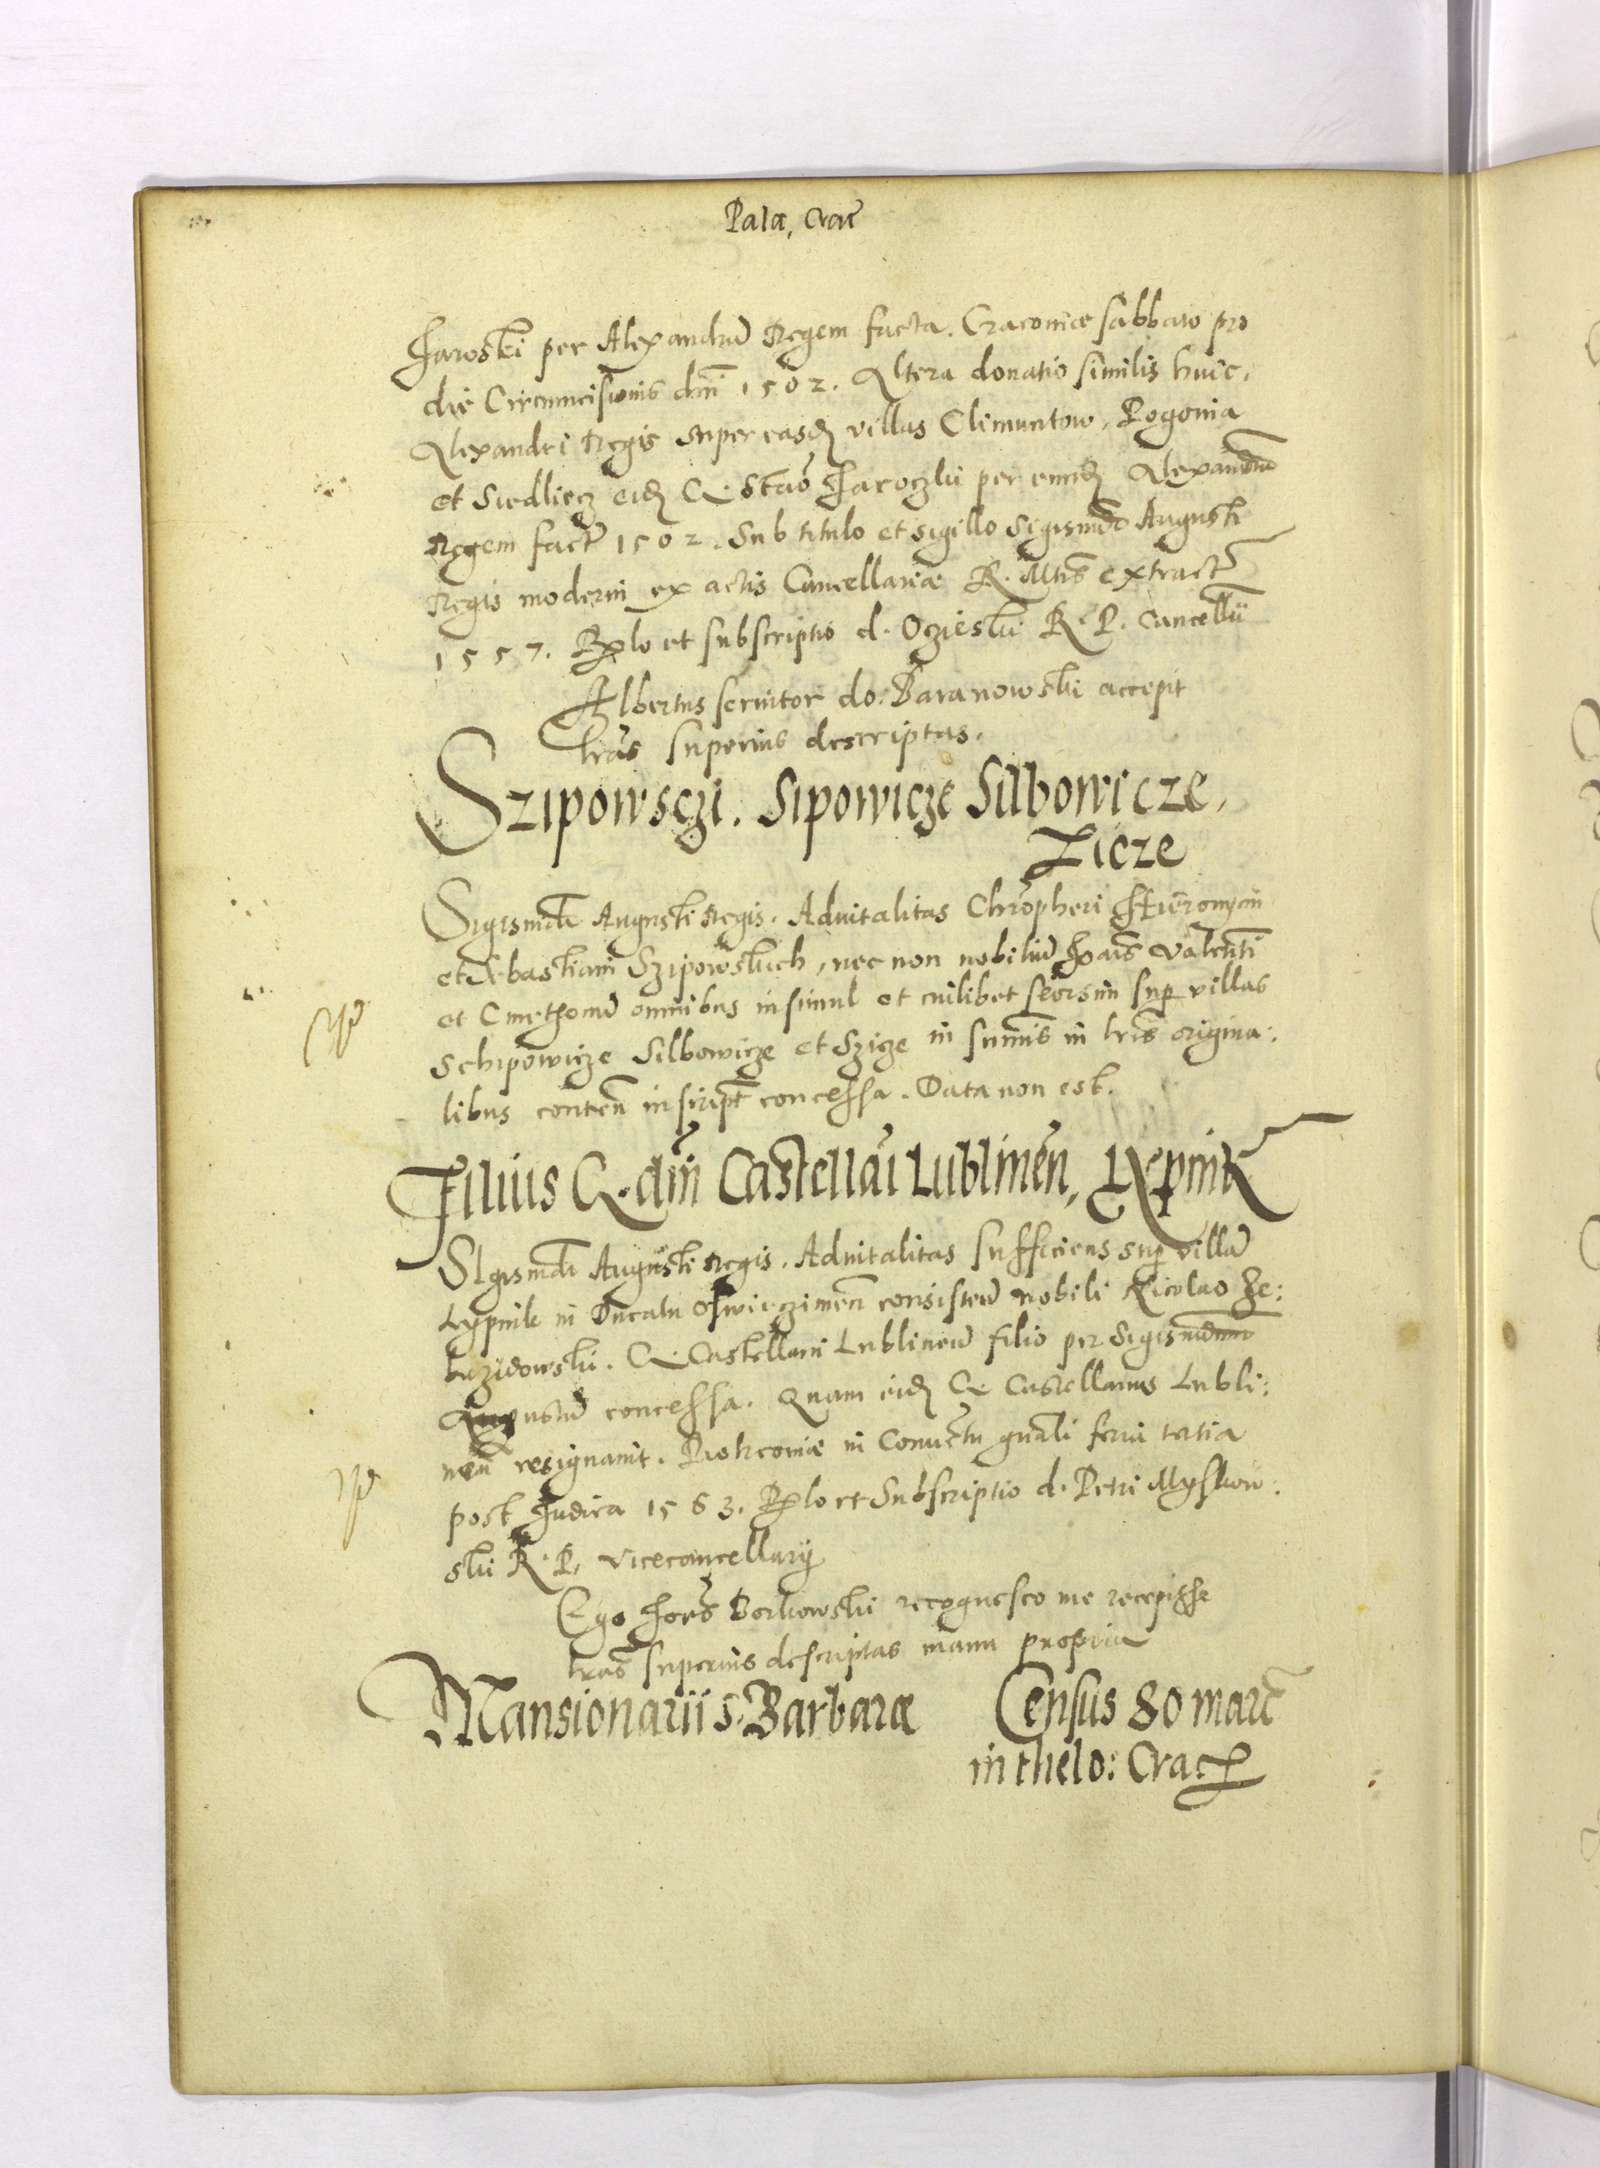 Pala, Crac̃
Jaroski per Alexandrũ Regem facta. Cracoviæ sabbato pro
die Circumcisionis dñi 1502. Altera donatio similis huic,
Alexandri Regis super easdẽ villas Climuntow, Pogonia
et Siedliecz eidẽ G. Stao Jaroczki per eundẽ Alexandrũ
Regem fact 1502. Sub titulo et sigillo Sigismũdi Augusti
Regis moderni ex actis Cancellariæ R. Mtis extract
1557. et subscriptio d. Oczieski R. P. Cancellii
Albertus servitor do: Baranowski accepit
lras superius descriptas.
Szipowsczi. Sipowicze Silbowicze,
Zicze
Sigismũdi Augusti Regis. Advitalitas Chropheri Hieronymi
et Sebastiani Szipowskich, nec non nobiliũ Joãis Valenti
et Cmethonũ omnibus insimul et cuilibet seorsim sup villas
Schipowicze Silbowicze et Szicze in summis in lris origina:
libus conten inscript concessa. Data non est.
Filius G. dñi Castellãi Lublineñ, Lypnik
Sigismũdi Augusti Regis. Advitalitas sufficiens sup villã
Lypnik in Ducatu Oswieczimeñ consisteñ nobili Nicolao Ze:
brzidowski. G. Castellani Lublineñ filio per Sigismundum
Augustũ concessa. Quam eidẽ G. Castellanus Lubli:
neñ resignavit. Piotrcoviæ in Conventu gnãli feria tertia
post Judica 1563. et Subscriptio d. Petri Myskow:
ski R. P. Vicecancellarij
Ego Joẽs Borkowski recognosco me recepisse
lras superius descriptas manu propria
Mansionarii S. Barbaræ Census 80 marc̃
in thelo: Crac